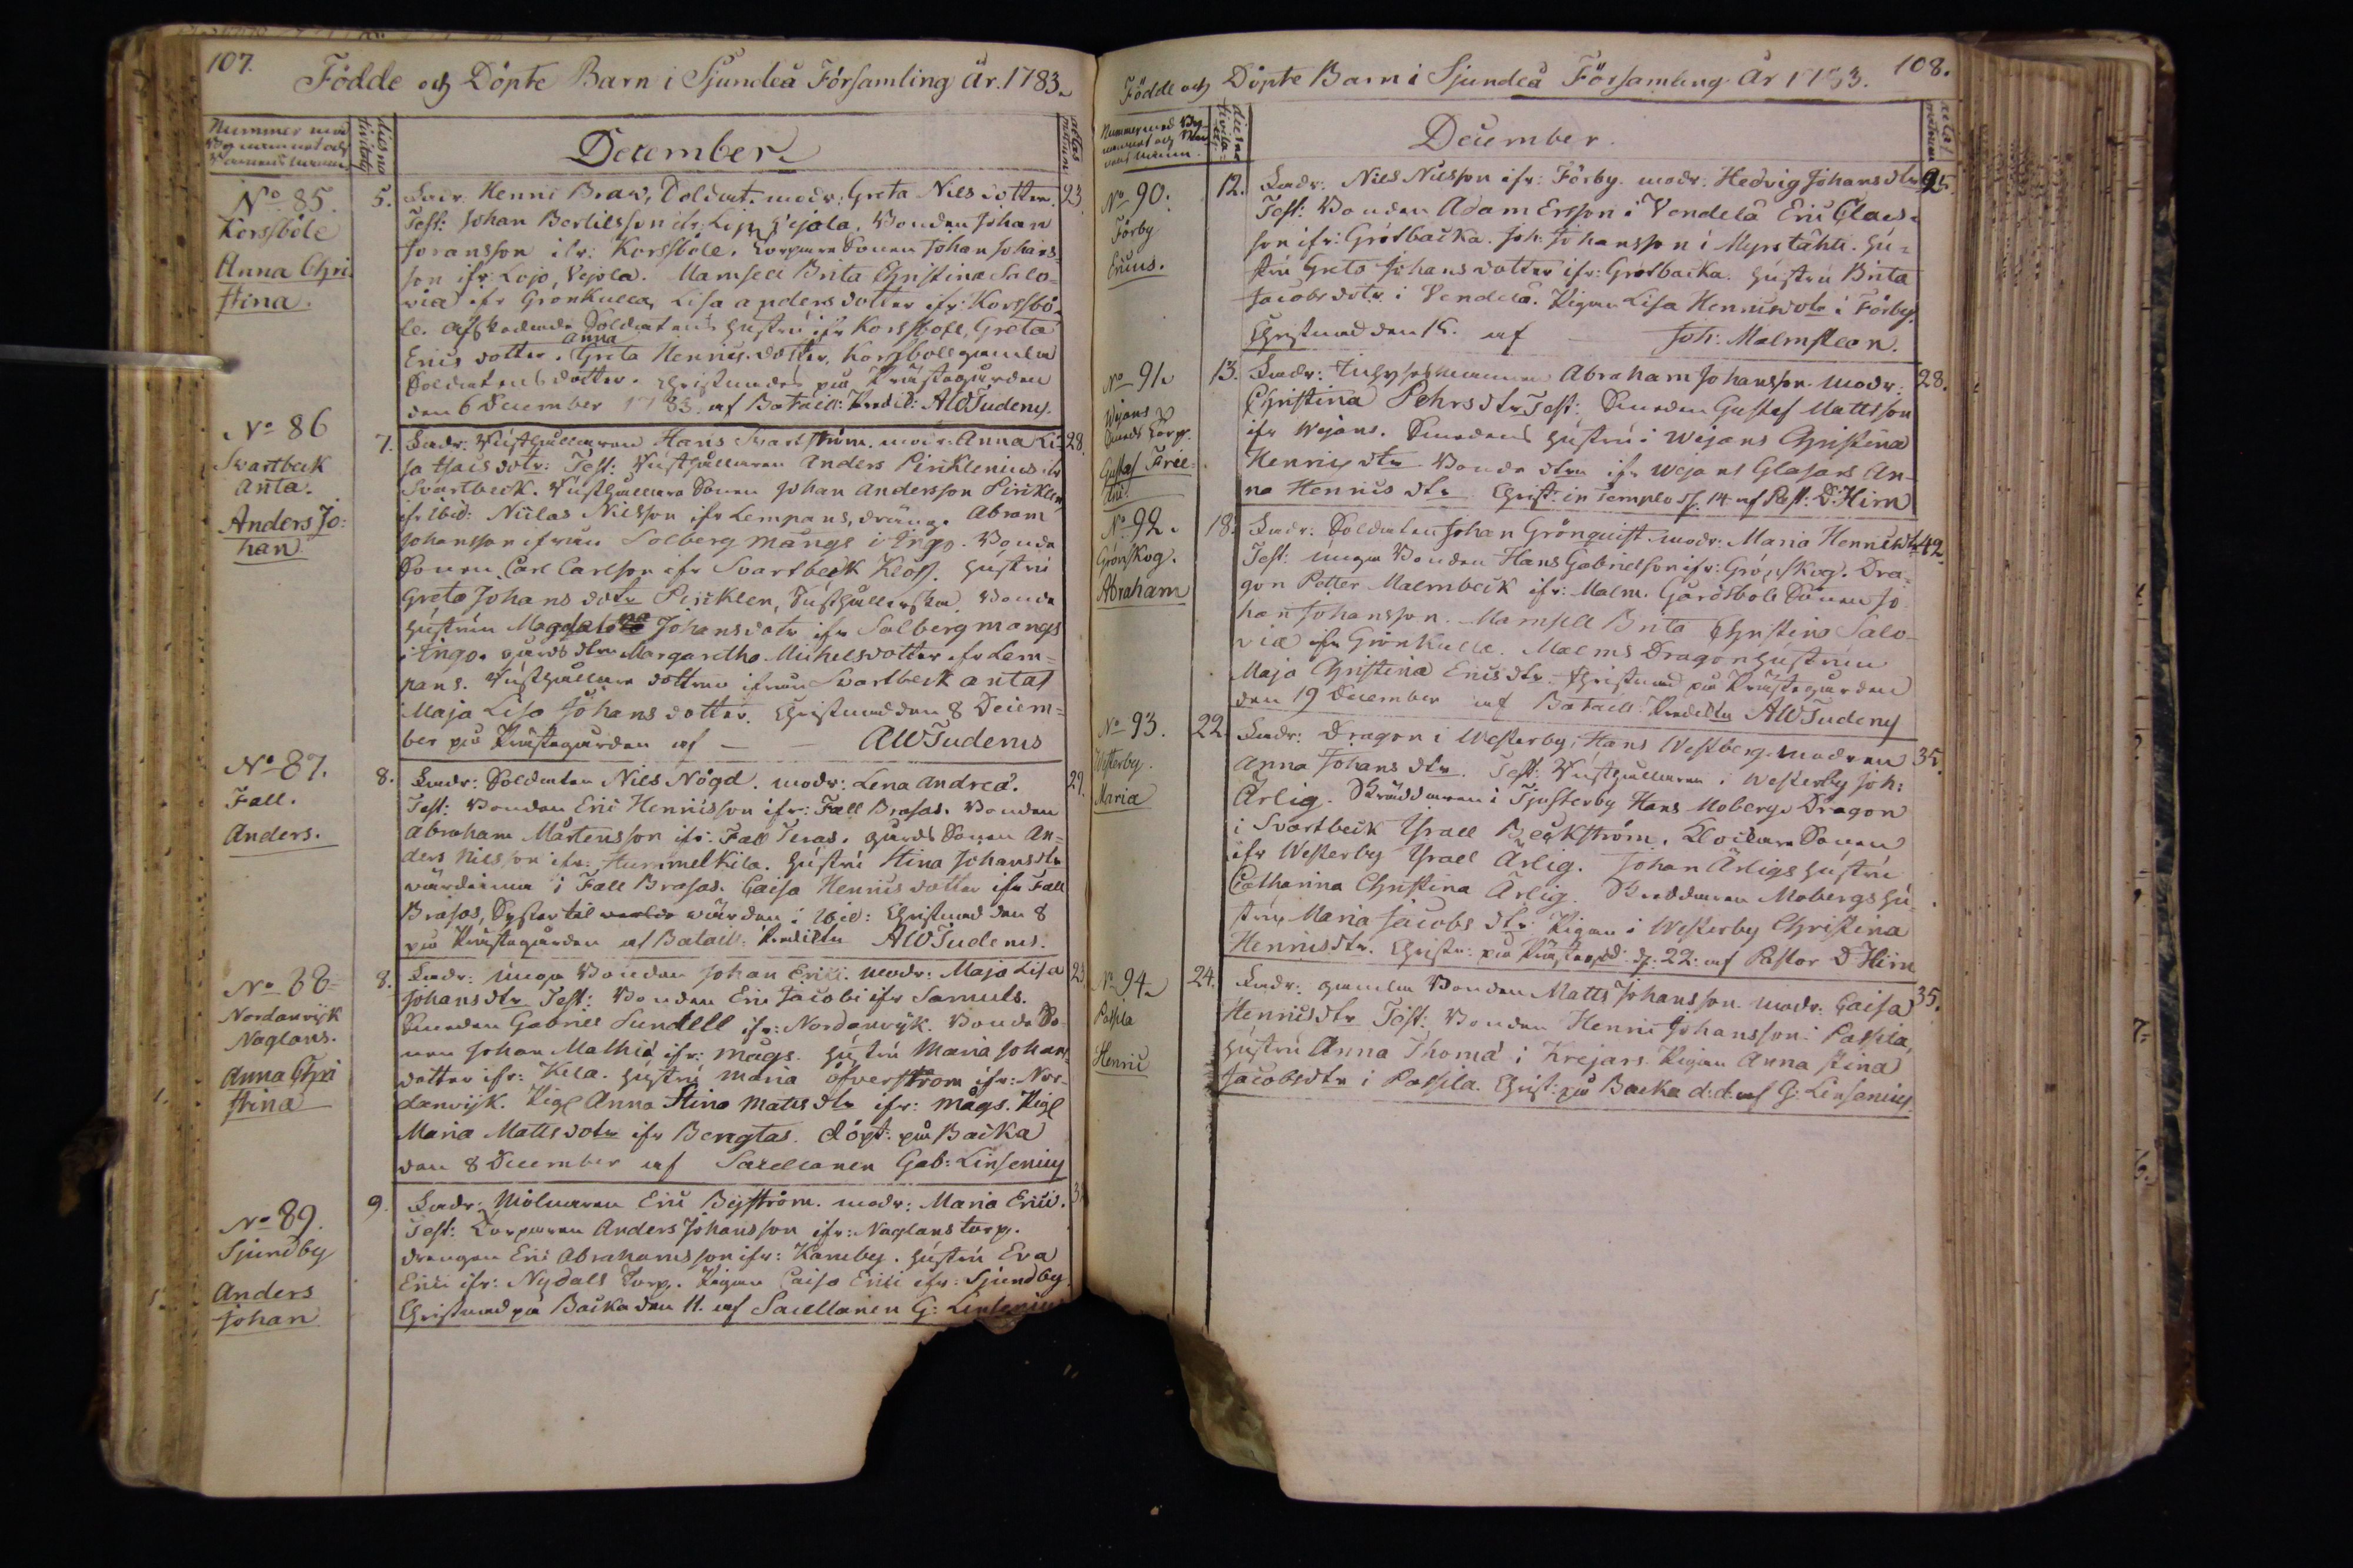 107.
Födde och Döpte Barn i Sjundeå Församling år. 1783.
Nummer med
December.
No 85.
Korsböle
Anna Chri
stina.
5.
Fadr. Henric Braw, Soldat. modr: Greta Nils dotter. 23.
Test: Johan Bertilsson Vejola, Bonden Johan
Joransson ifr: Korsböle, Torpare Sonen Johan Johans
son ifr. Lojo, Vejola. Mamsell Brita Christina Salo-
via ifr Grönkulla, Lisa anders dotter ifr: Korsbö-
le. Afskedade Soldatens hustru ifr Korsböle, Greta
anna
Erics dotter. Greta Henrics dotter, Korsböle gamla
Soldatens dotter. Christnades på Prästegården
den 6 December 1783. af Bataill: Predik: AWTudeny.
No 86
Svartbeck
anta.
Anders Jo:
han.
7.
Fadr. Rusthållaren Hans Svartström. modr. Anna Li- 28.
sa Hais dotr: Test: Rusthållaren Anders Pinklenius ifr
Svartbeck. Rusthållare Sonen Johan Andersson Pinklen
ifr ibid: Niclas Nilsson ifr Lempans, dräng. Abram
Johansson ifrån Solberg Mångs i Ingo. Bonde
Sonen Carl Carlson ifr Svartbeck Klöf. hustru
Greta Johans dotr Pinklen, Rusthållerska. Bonde
hustrun Magdalena Johansdotr ifr Solberg mangs
i Ingo. gårds dtr Margaretha Michelsdotter ifr Lem=
pans. Rusthållare dottren ifrån Svartbeck antas
Maja Lisa Johans dotter. Christnad den 8 Decem=
ber på Prästegården af — — AWTudenis
No 87.
Fall.
Anders.
8.
Fadr: Soldaten Nils Nögd. modr: Lena Andreæ. 29.
Test: Bonden Eric Henricsson ifr: Fall Brasas. Bonden
Abraham Mårtensson ifr: Fall Teras. gårds Sonen An=
ders Nilsson ifr: Hummelkila. hustru Stina Johansdtr
värdinna i Fall Brasas. Caisa Henrics dotter ifr Fall
Brasas, Syster til värden i ibid: Christnad den 8
på Prästegården af Batail: Predikln AWTudenis.
No 88
Nordanvijk
Naglans.
Anna Chri
stina
8.
Fadr: unga Bonden Johan Erici. modr: Maja Lisa 23.
Johansdtr Test: Bonden Eric Jacobi ifr Samuls.
Smeden Gabriel Sundell ifr: Nordanvijk. Bonde So-
nen Johan Mathiæ ifr: Mågs. hustru Maria Johans
dotter ifr: Kila. hustru Maria Öfverström ifr: Nor-
danvijk. Pig Anna Stina Mattsdtr ifr: Mågs. Pig
Maria Mattsdotr ifr Bengtas. döpt: på Backa
den 8 December af Sacellanen Gab: Linseniy
No 89.
Sjundby
Anders
Johan
9.
Fadr: Mölnaren Eric Byström. modr: Maria Erici.
Test: Torparen Anders Johansson ifr: Naglans torp.
drengen Eric Abrahamsson ifr: Karuby. hustru Eva
Erici ifr: Nydals Torp. Pigan Caisa Erici ifr: Sjundby.
Christnad på Backa den 11. af Sacellanen G: Linsenius
108.
Födde och Döpte Barn i Sjundeå Församling År 1783.
Nummer med
December.
No 90.
Förby
Ericus.
12.
Fadr: Nils Nilsson ifr: Förby. modr: Hedvig Johansdtr 25.
Test: Bonden Adam Ersson i Vendelä Eric Claes-
son ifr: Gråtbacka. Joh: Johansson i Myrs tähti. hu=
stru Greta Johans dotter ifr: Gråtbacka. hustru Brita
Jacobs dotr i Vendelä. Pigan Lisa Henricsdotr i Förby.
Christnad den 15. af — Joh: Malmsteon.
No 91.
Wejans
Gustaf Fried
ric
13.
Fadr: Inhysesmannen Abraham Johansson. modr. 28.
Christina Pehrs dtr Test: Smeden Gustaf Mattsson
ifr Wejans. Smedens hustru i Wejans Christina
Henrics dtr Bonde dtren ifr Wejans Glasars An-
na Henrics dtr Christ: in Templo d. 14 af Past: D: Hirn
No 92.
Grönskog.
Abraham
18.
Fadr: Soldaten Johan Grönquist modr: Maria Henricsdtr 42.
Test: unga Bonden Hans Gabrielson ifr: Grönskog. Dra-
gon Petter Malmbeck ifr: Malm. Gårdsbols Sonen Jo
han Johansson. Mamsell Brita Christina Salo-
via ifr Grönkulla. Malms Dragon hustrun
Maja Christina Erics dtr Christnad på Prästegården
den 19 December af Bataill Predikln AWTudeny
No 93.
Westerby.
Maria
22.
Fadr: Dragon i Westerby, Hans Westberg. modren 35.
Anna Johans dtr. Test: Rusthållaren i Westerby Joh:
Ärlig. Skräddaren i Tjusterby Hans Moberg. Dragon
i Svartbeck Israel Beckström. Klockare Sonen
ifr Westerby Israel Ärlig. Johan Ärligs hustru
Catharina Christina Ärlig. Skreddaren Mobergs hu
stru, Maria Jacobs dtr Pigan i Westerby Christina
Henricsdtr. Christn: på Prästegd: d. 22. af Pastor D Hirn
No 94.
Passila
Henric
24.
Fadr: gamla Bonden Matts Johansson. modr. Caisa 35.
Henricsdtr Test: Bonden Henric Johansson i Passila,
hustru Anna Thomæ i Krejars. Pigan Anna Stina
Jacobsdtr i Passila. Christ: på Backa d: d: af G: Linseniuy.